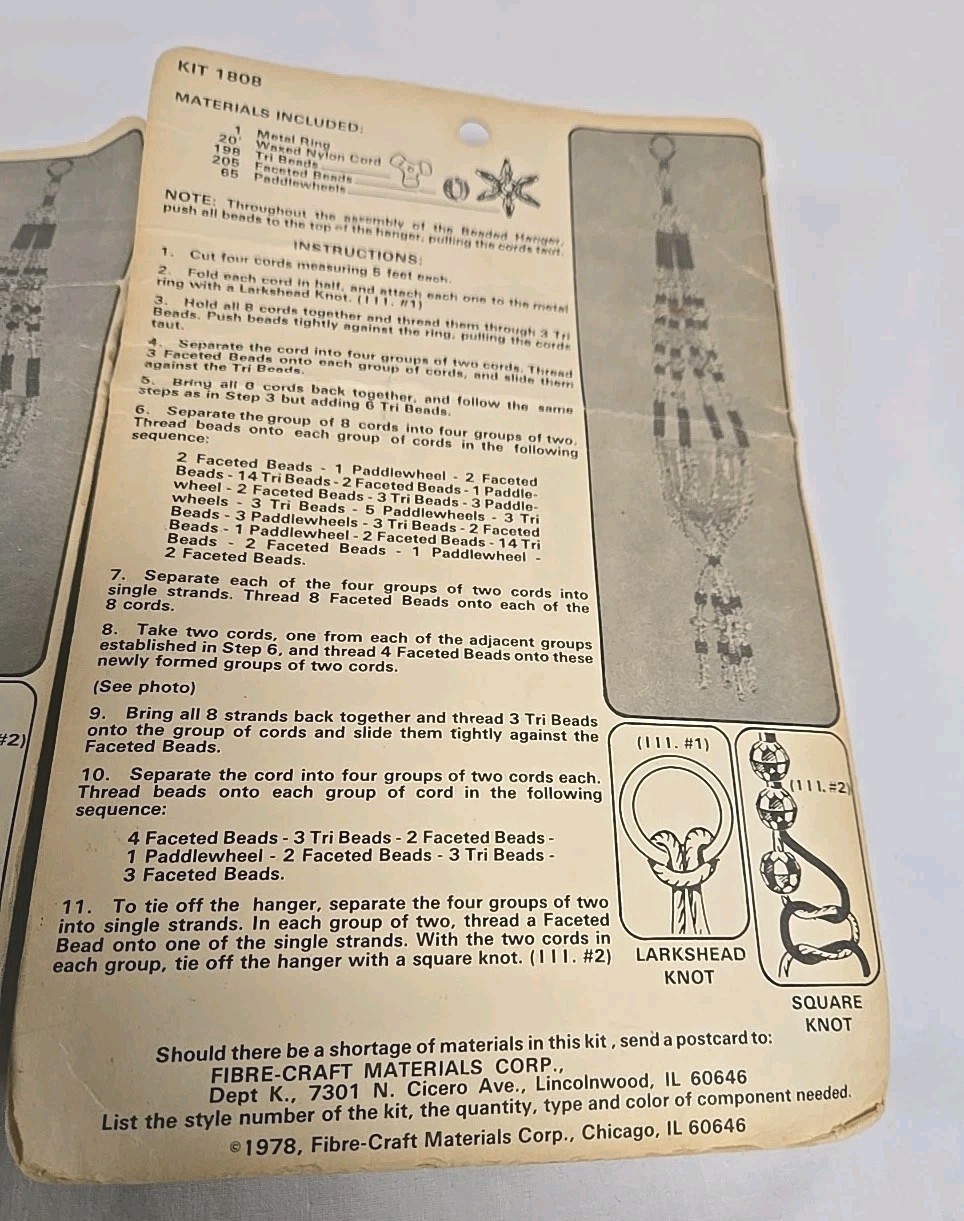 KIT 1808
MATERIALS INCLUDED:
1 Metal Ring
20' Waxed Nylon Cord
198 Tri Beads
205 Faceted Beads
65 Paddlewheels
NOTE: Throughout the assembly of the Beaded Hanger,
push all beads to the top of the hanger, pulling the cords taut.
INSTRUCTIONS:
1. Cut four cords measuring 5 feet each.
2. Fold each cord in half, and attach each one to the metal
ring with a Larkshead Knot. (Ill. #1)
3. Hold all 8 cords together and thread them through 3 Tri
Beads. Push beads tightly against the ring, pulling the cords
taut.
4. Separate the cord into four groups of two cords. Thread
3 Faceted Beads onto each group of cords, and slide them
against the Tri Beads.
5. Bring all 8 cords back together, and follow the same
steps as in Step 3 but adding 6 Tri Beads.
6. Separate the group of 8 cords into four groups of two.
Thread beads onto each group of cords in the following
sequence:
2 Faceted Beads - 1 Paddlewheel - 2 Faceted
Beads - 14 Tri Beads - 2 Faceted Beads - 1 Paddle-
wheel - 2 Faceted Beads - 3 Tri Beads - 3 Paddle-
wheels - 3 Tri Beads - 5 Paddlewheels - 3 Tri
Beads - 3 Paddlewheels - 3 Tri Beads - 2 Faceted
Beads - 1 Paddlewheel - 2 Faceted Beads - 14 Tri
Beads - 2 Faceted Beads - 1 Paddlewheel -
2 Faceted Beads.
7. Separate each of the four groups of two cords into
single strands. Thread 8 Faceted Beads onto each of the
8 cords.
8. Take two cords, one from each of the adjacent groups
established in Step 6, and thread 4 Faceted Beads onto these
newly formed groups of two cords.
(See photo)
9. Bring all 8 strands back together and thread 3 Tri Beads
onto the group of cords and slide them tightly against the
Faceted Beads.
10. Separate the cord into four groups of two cords each.
Thread beads onto each group of cord in the following
sequence:
4 Faceted Beads - 3 Tri Beads - 2 Faceted Beads -
1 Paddlewheel - 2 Faceted Beads - 3 Tri Beads -
3 Faceted Beads.
11. To tie off the hanger, separate the four groups of two
into single strands. In each group of two, thread a Faceted
Bead onto one of the single strands. With the two cords in
each group, tie off the hanger with a square knot. (Ill. #2)
#2)
(Ill. #1)
LARKSHEAD
KNOT
(Ill. #2)
SQUARE
KNOT
Should there be a shortage of materials in this kit, send a postcard to:
FIBRE-CRAFT MATERIALS CORP.,
Dept K., 7301 N. Cicero Ave., Lincolnwood, IL 60646
List the style number of the kit, the quantity, type and color of component needed.
©1978, Fibre-Craft Materials Corp., Chicago, IL 60646